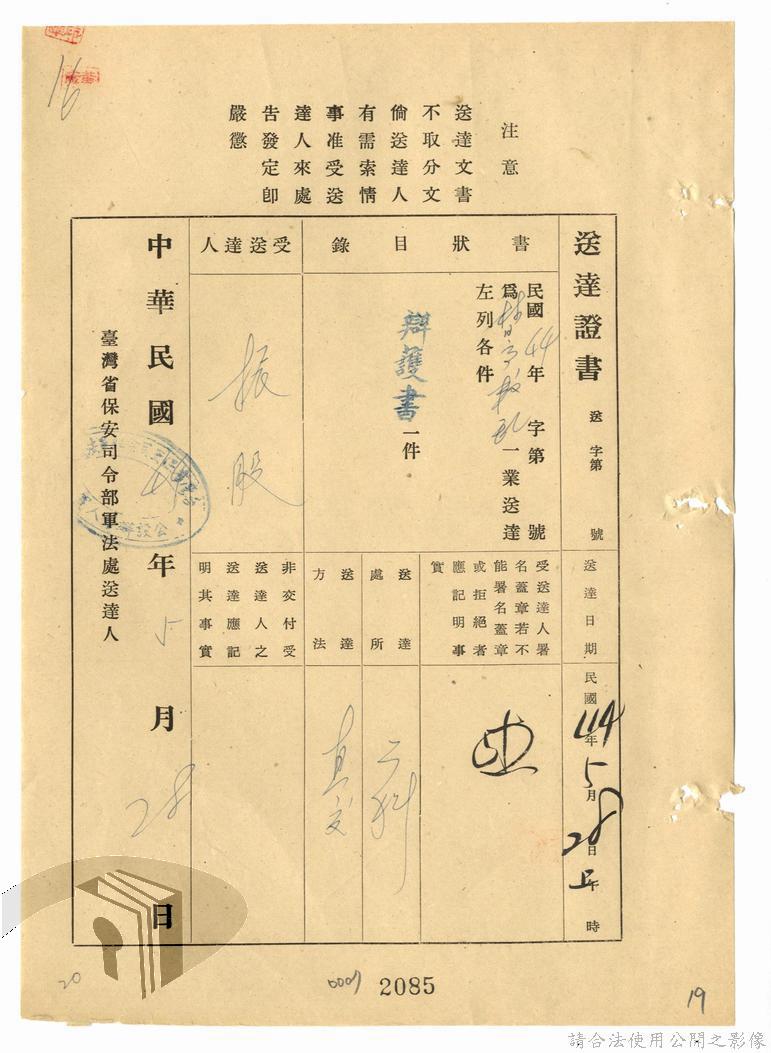 16
注意
送達文書
不取分文
倘送達人
有需索情
事准受送
達人來處
告發定卽
嚴懲
送達證書 送 字第 號
送達日期
民國44年5月28日上午 時
書狀目錄
民國44年 字第 號
爲 叛亂一業送達
左列各件
辯護書一件
受送達人署
名蓋章若不
能署名蓋章
或拒絕者
應記明事
實
送達
處所
二科
送達
方法
直交
受送達人
振股
非交付受
送達人之
送達應記
明其事實
中華民國44年5月28日
臺灣省保安司令部軍法處送達人
20
0007
2085
19
請合法使用公開之影像